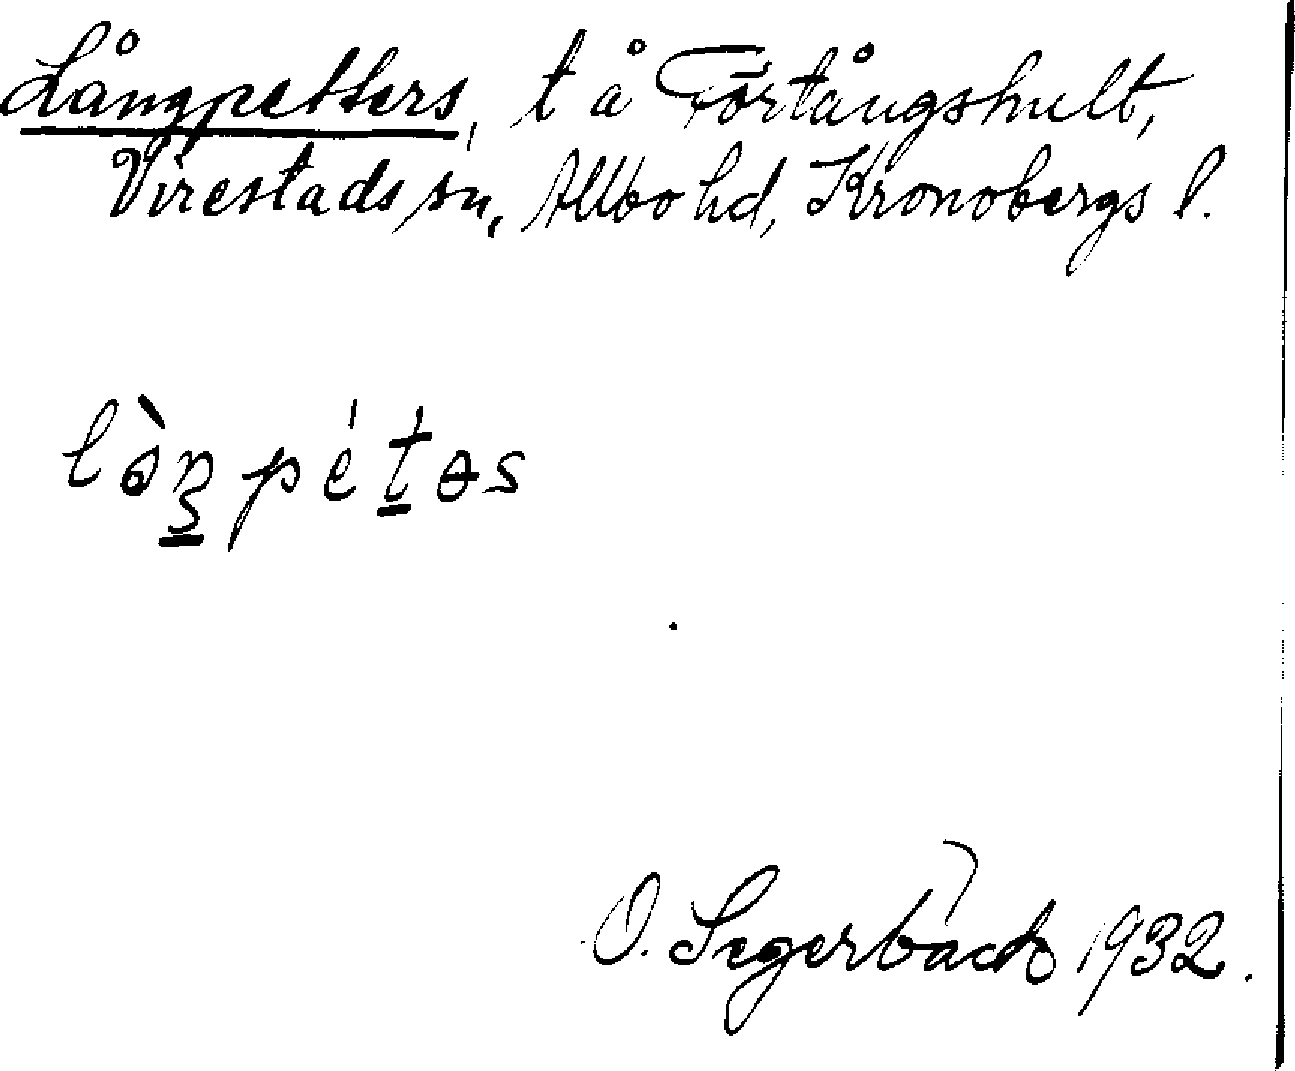 Långpetters, t å Förtångshult,
Virestads sn, Allbo hd, Kronobergs l.
lòŋpétəs
O. Segerbäck 1932.